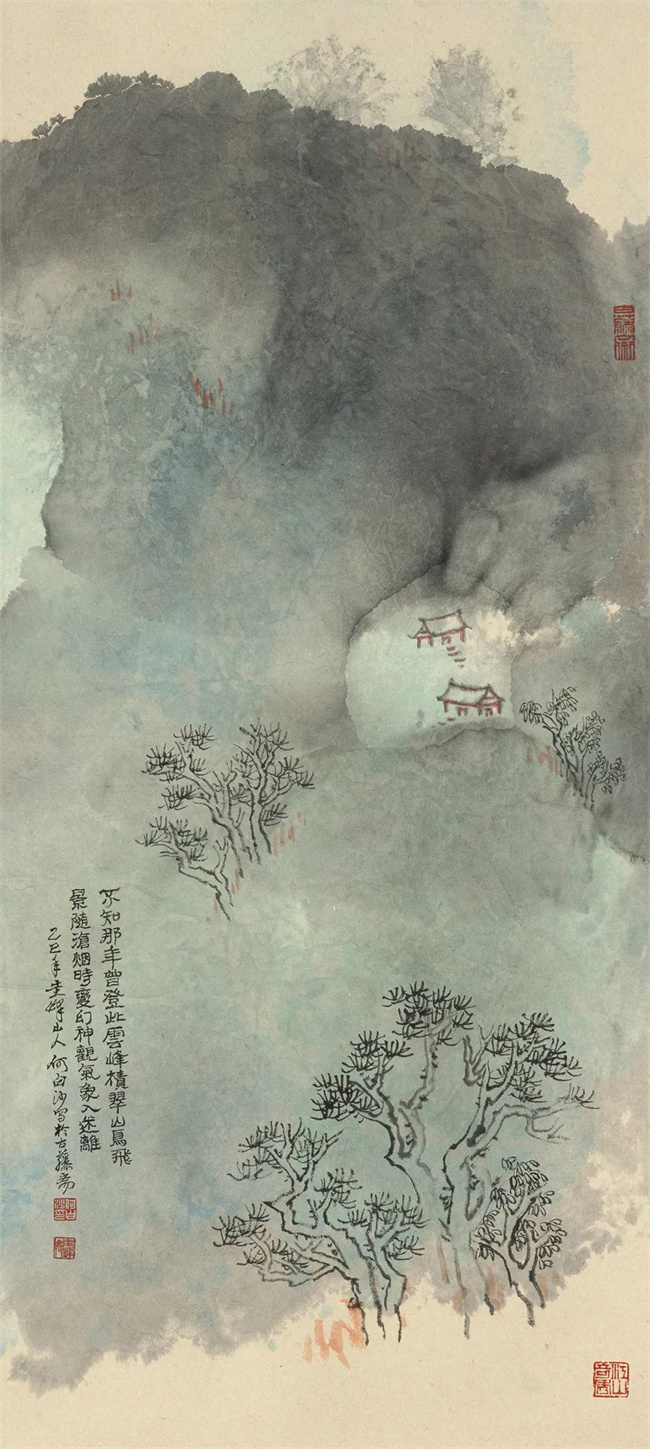 不知那年曾登此雲峰積翠山鳥飛
景隨滄烟時變幻神觀氣象入迷離
乙巳年圭峰山人何白沙写於古藤斋